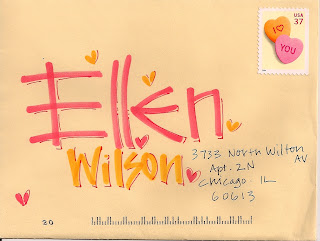 I ♥
YOU
USA
37
Ellen
Wilson
3733 North Wilton
AV
Apt. 2N
Chicago IL
60613
20